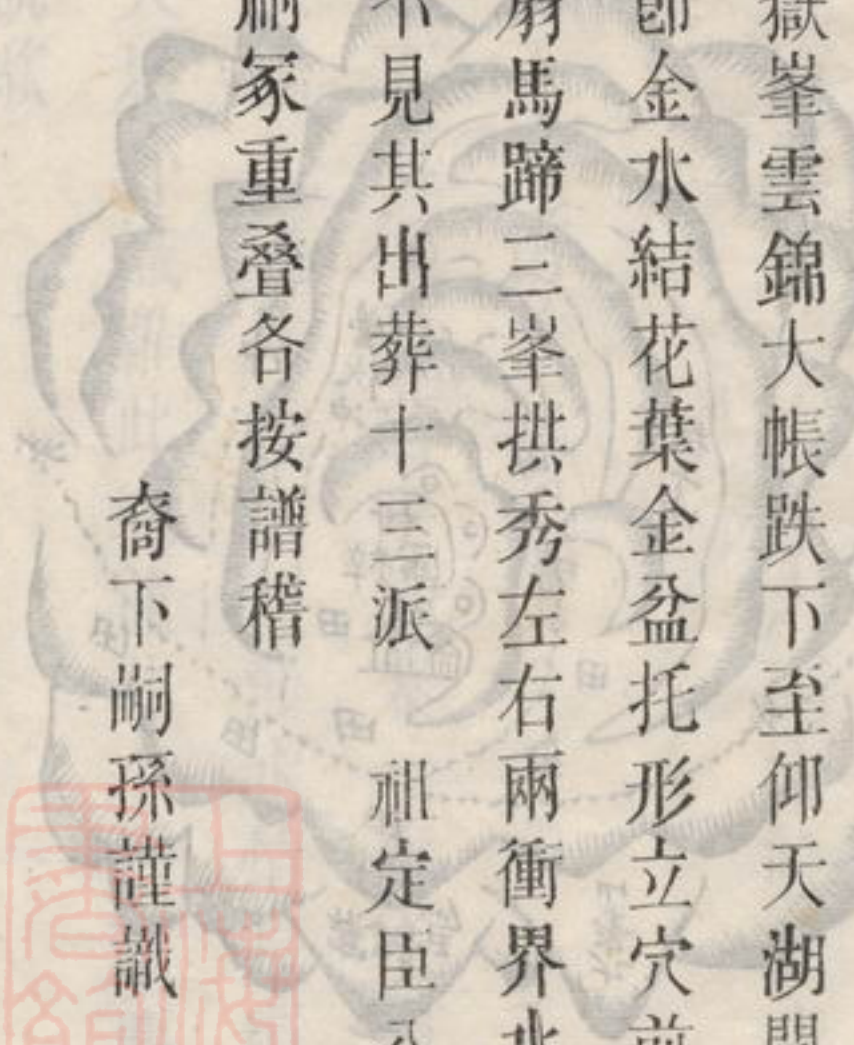 嶽峯雲錦大帳跌下至仰天湖開
卽金水結花葉金盆托形立穴前
肩馬蹄三峯拱秀左右兩衝界
不見其出葬十三派　祖定臣公
嗣冢重叠各按譜稽
裔下嗣孫謹識